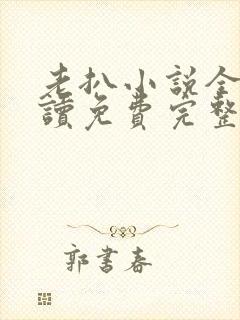 老扒小説全
讀免費完整
郭書春